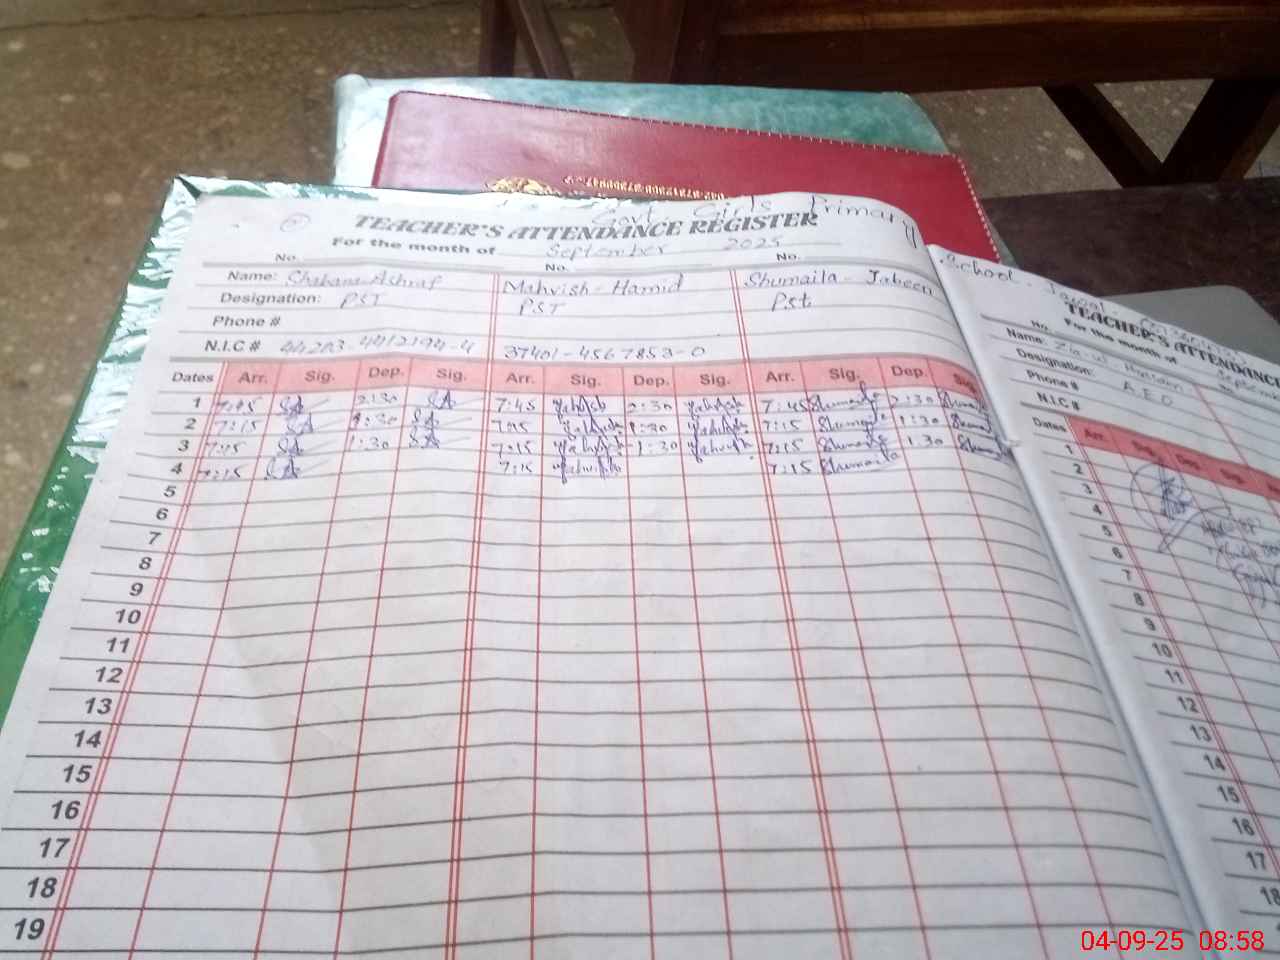 Govt. Girls Primary
TEACHER'S ATTENDANCE REGISTER
For the month of September 2025
No. No. No.
Name: Shabana Ashraf Mahvish Hamid Shumaila Jabeen
Designation: PST PST Pst
Phone #
N.I.C # 37401-4567853-0
Dates Arr. Sig. Dep. Sig. Arr. Sig. Dep. Sig. Arr. Sig. Dep. Sig.
1 7:45 SA 2:30 SA 7:45 2:30 7:45 2:30
2 7:15 SA 1:30 SA 7:15 1:30 7:15 1:30
3 7:15 SA 1:30 SA 7:15 1:30 7:15 1.30
4 7:15 SA 7:15 7:15 Shumaila
5
6
7
8
9
10
11
12
13
14
15
16
17
18
19
School.
TEACHER'S ATTENDANCE
For the month of
No.
Name:
Designation: A.E.O
Phone #
N.I.C #
Dates Arr. Sig. Dep. Sig.
1
2
3
4
5
6
7
8
9
10
11
12
13
14
15
16
17
18
04-09-25 08:58